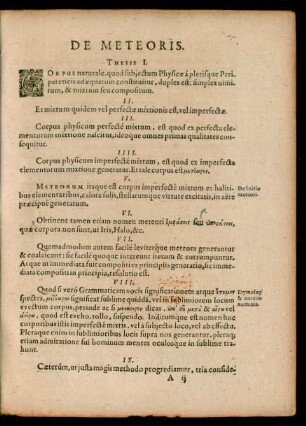 DE METEORIS.
THESIS I.
CORPUS naturale, quod subjectum Physicæ à plerisque Peri-
pateticis adæquatum constituitur, duplex est: simplex nimi-
rum, & mixtum seu compositum.
II.
Et mixtum quidem vel perfectæ mixtionis est, vel imperfectæ.
III.
Corpus physicum perfectè mixtum, est quod ex perfecta ele-
mentorum mixtione nascitur, ideoque omnes primas qualitates con-
sequitur.
IIII.
Corpus physicum imperfectè mixtum, est quod ex imperfecta
elementorum mixtione generatur. Et tale corpus est
V.
METEORUM itaque est corpus imperfectè mixtum ex haliti-
bus elementaribus, calore solis, stellarumque virtute excitatis, in aëre
præcipuè generatum.
Definitio
meteori.
VI.
Obtinent tamen etiam nomen meteori
quæ corpora non sunt, ut Iris, Halo, &c.
VII.
Quemadmodum autem facilè leviterque meteora generantur
& coalescunt: sic facilè quoque intereunt iterum & corrumpuntur.
Atque ut immediata fuit compositi ex principiis generatio, sic imme-
diata compositi in principia, resolutio est.
VIII.
Quod si verò Grammaticam vocis significationem atque
spectes, significat sublime quiddā, vel in sublimiorem locum
evectum corpus, perinde ac si dicas,
quod est eveho, tollo, suspendo. Inditumque est nomen hoc
corporibus istis imperfectè mixtis, vel à subjecto loco, vel ab effectu.
Pleraque enim in sublimioribus locis supra nos generantur, pleraq;
etiam admiratione sui hominum mentes oculosque in sublime tra-
hunt.
IX.
Cæterùm, ut justa magis methodo progrediamur, tria conside-
A ij